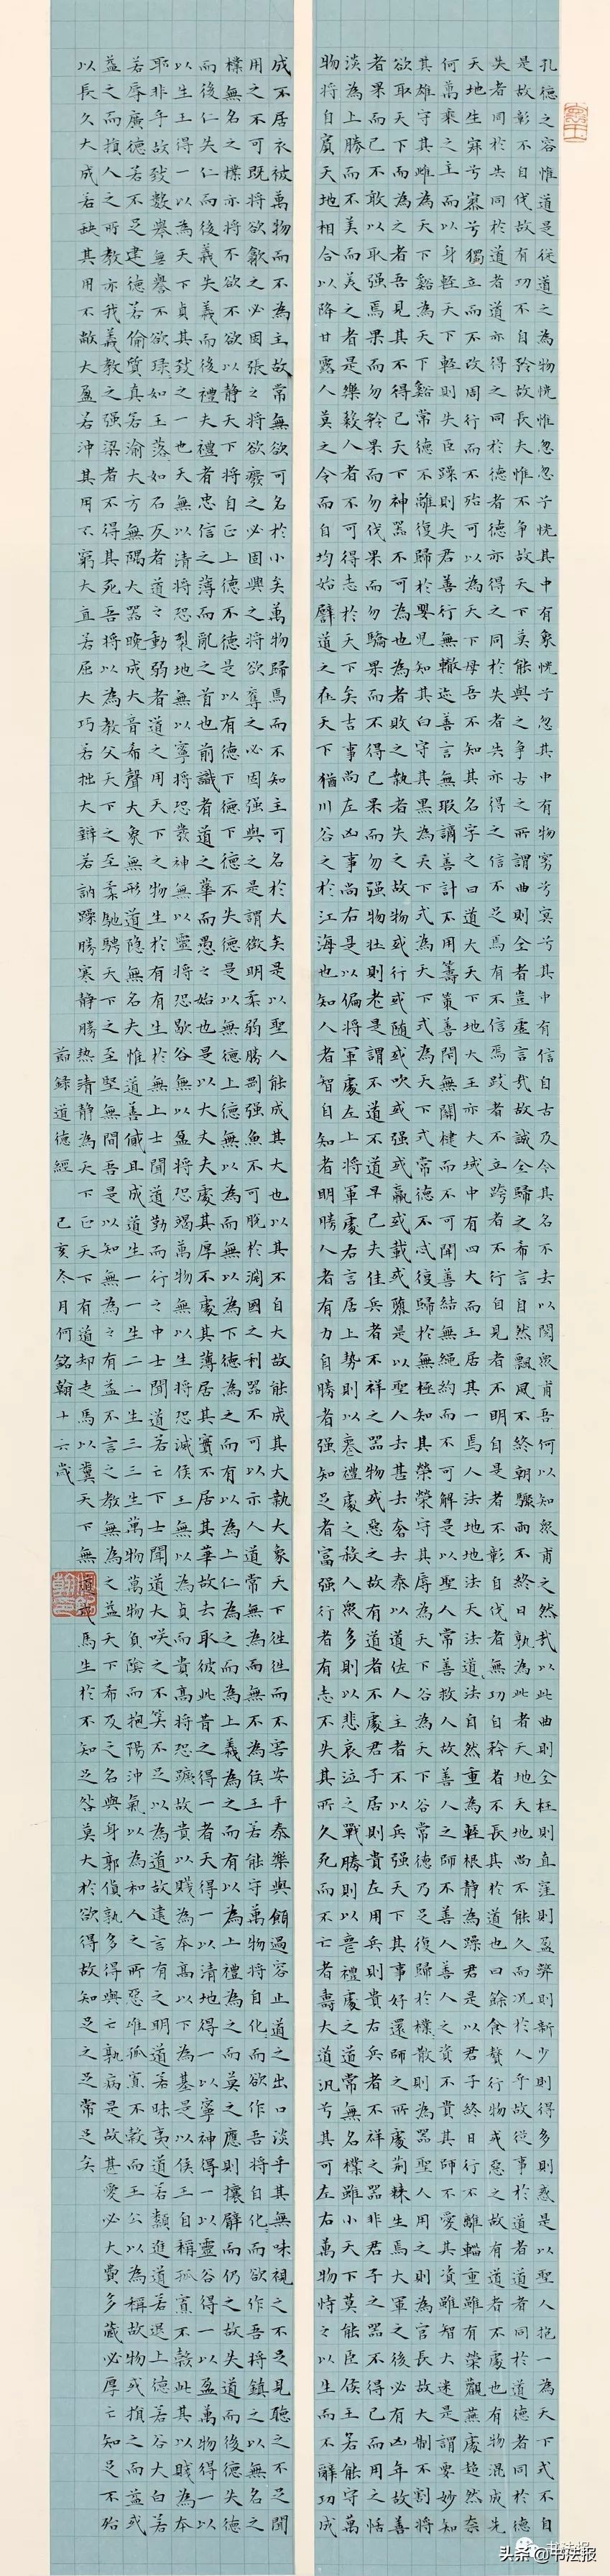 孔德之容惟道是從道之為物恍惟忽忽兮恍其中有象恍兮忽其中有物窈兮冥兮其中有信自古及今其名不去以閱眾甫吾何以知眾甫之然哉以此曲則全枉則直窪則盈弊則新少則得多則惑是以聖人抱一為天下式不自
是故彰不自伐故有功不自矜故長夫惟不爭故天下莫能與之爭古之所謂曲則全者豈虛言哉故誠全歸之希言自然飄風不終朝驟雨不終日孰為此者天地天地尚不能久而況於人乎故從事於道者道者同於道德者同於德
失者同於失同於道者道亦得之同於德者德亦得之同於失者失亦得之信不足焉有不信焉跂者不立跨者不行自見者不明自是者不彰自伐者無功自矜者不長其於道也曰餘食贅行物或惡之故有道者不處也有物混成先
天地生寂兮寥兮獨立而不改周行而不殆可以為天下母吾不知其名字之曰道大天下地大王亦大域中有四大而王居其一焉人法地地法天天法道道法自然重為輕根靜為躁君是以君子終日行不離輜重雖有榮觀燕處超然奈
何萬乘之主而以身輕天下輕則失臣躁則失君善行無轍迹善言無瑕讁善計不用籌策善閉無關楗而不可開善結無繩約而不可解是以聖人常善救人故善人之師不善人善人之資不貴其師不愛其資雖智大迷是謂要妙知
其雄守其雌為天下谿為天下谿常德不離復歸於嬰兒知其白守其黑為天下式為天下式為天下式常德不忒復歸於無極知其榮守其辱為天下谷為天下谷常德乃足復歸於樸散則為器聖人用之則為官長故大制不割將
欲取天下而為之者吾見其不得已天下神器不可為也為者敗之執者失之故物或行或隨或吹或强或羸或載或隳是以聖人去甚去奢去泰以道佐人主者不以兵强天下其事好還師之所處荊棘生焉大軍之後必有凶年故善
者果而已不敢以取强焉果而勿矜果而勿伐果而勿驕果而不得已果而勿强物壯則老是謂不道不道早已夫佳兵者不祥之器物或惡之故有道者不處君子居則貴左用兵則貴右兵者不祥之器非君子之器不得已而用之恬
淡為上勝而不美而美之者是樂殺人者不可得志於天下矣吉事尚左凶事尚右是以偏將軍處左上將軍處右言居上勢則以喪禮處之殺人眾多則以悲哀泣之戰勝則以喪禮處之道常無名樸雖小天下莫能臣侯王若能守之萬
物將自賓天地相合以降甘露人莫之令而自均始譬道之在天下猶川谷之於江海也知人者智自知者明勝人者有力自勝者强知足者富强行者有志不失其所久死而不亡者壽大道汎兮其可左右萬物恃之以生而不辭功成
成不居衣被萬物而不為主故常無欲可名於小矣萬物歸焉而不知主可名於大矣是以聖人能成其大也以其不自大故能成其大執大象天下往往而不害安平泰樂與餌過容止道之出口淡乎其無味視之不足見聽之不足聞
用之不可既將欲歙之必固張之將欲廢之必固興之將欲奪之必固與之是謂微明柔弱勝剛强魚不可脫於淵國之利器不可以示人道常無為而無不為侯王若能守萬物將自化而欲作吾將自化而欲作吾將鎮之以無名之
樸無名之樸亦將不欲不欲以靜天下將自正上德不德是以有德下德不失德是以無德上德無以為而無以為下德為之而有以為上仁為之而為上義為之而有以為上禮為之而莫之應則攘臂而仍之故失道而後德失德
而後仁失仁而後義失義而後禮夫禮者忠信之薄而亂之首也前識者道之華而愚之始也是以大丈夫處其厚不處其薄居其實不居其華故去取彼此昔之得一者天得一以清地得一以寧神得一以靈谷得一以盈萬物得一以
以生王得一以為天下貞其致之一也天無以清將恐裂地無以寧將恐發神無以靈將恐歇谷無以盈將恐竭萬物無以生將恐滅侯王無以為貞而貴高將恐蹶故貴以賤為本高以下為基是以侯王自稱孤寡不穀此其以賤為本
耶非乎故致數譽無譽不欲琭如玉落如石反者道之動弱者道之用天下之物生於有有生於無上士聞道勤而行之中士聞道若亡下士聞道大咲之不笑不足以為道故建言有之明道若昧夷道若纇進道若退上德若谷大白若
若辱廣德若不足建德若偷質真若渝大方無隅大器晚成大音希聲大象無形道隱無名夫惟道善貸且成道生一一生二二生三三生萬物萬物負陰而抱陽沖氣以為和人之所惡惟孤寡不穀而王公以為稱故物或損之而益或
益之而損人之所教亦我義教之强梁者不得其死吾將以為教父天下之至柔馳騁天下之至堅無間吾是以知無為之有益不言之教無為之益天下希及之名與身孰貨孰多得與亡孰病是故甚愛必大費多藏必厚亡知足不殆
以長久大成若缺其用不敝大盈若沖其用不窮大直若屈大巧若拙大辯若訥躁勝寒靜勝熱清靜為天下正天下有道却走馬以糞天下無道戎馬生於不知足咎莫大於欲得故知足之足常足矣
節録道德經 己亥冬月何銘翰十六歲
头条 @书法报